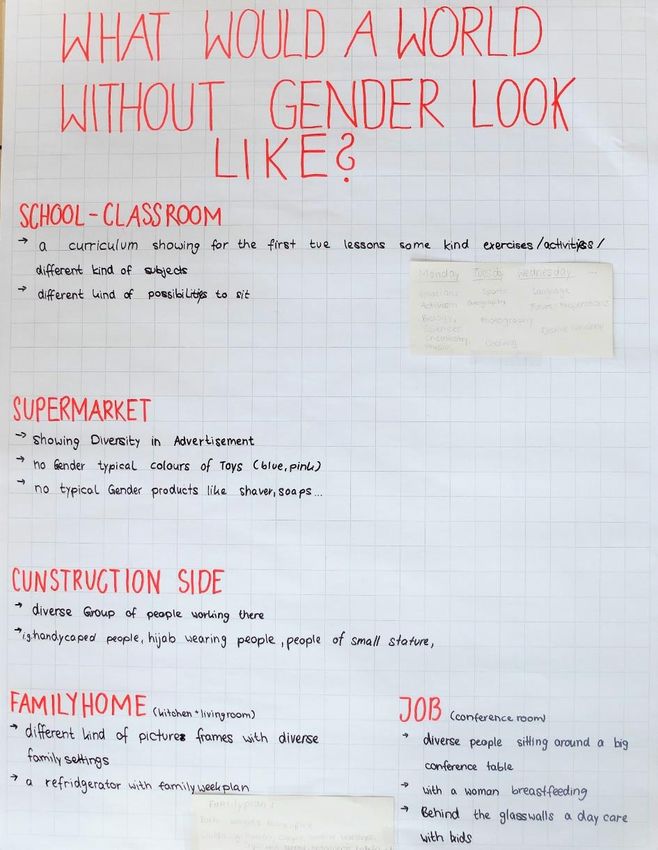 WHAT WOULD A WORLD
WITHOUT GENDER LOOK
LIKE?
SCHOOL - CLASSROOM
→ a curriculum showing for the first tue lessons some kind exercises/activities/
different kind of subjects
→ different kind of possibilities to sit
Monday Tuesday Wednesday ...
Sports Language
Activism Geography
Biology, Photography
Sciences
Chemistry
Music Cooking
SUPERMARKET
→ showing Diversity in Advertisement
→ no Gender typical colours of Toys (blue, pink)
→ no typical Gender products like shaver, soaps...
CUNSTRUCTION SIDE
→ diverse Group of people working there
→ handycaped people, hijab wearing people, people of small stature,
FAMILYHOME (kitchen + livingroom)
→ different kind of pictures frames with diverse
family settings
→ a refridgerator with family weekplan
Familyplan:
JOB (conference room)
→ diverse people sitting around a big
conference table
→ with a woman breastfeeding
→ Behind the glasswalls a day care
with kids